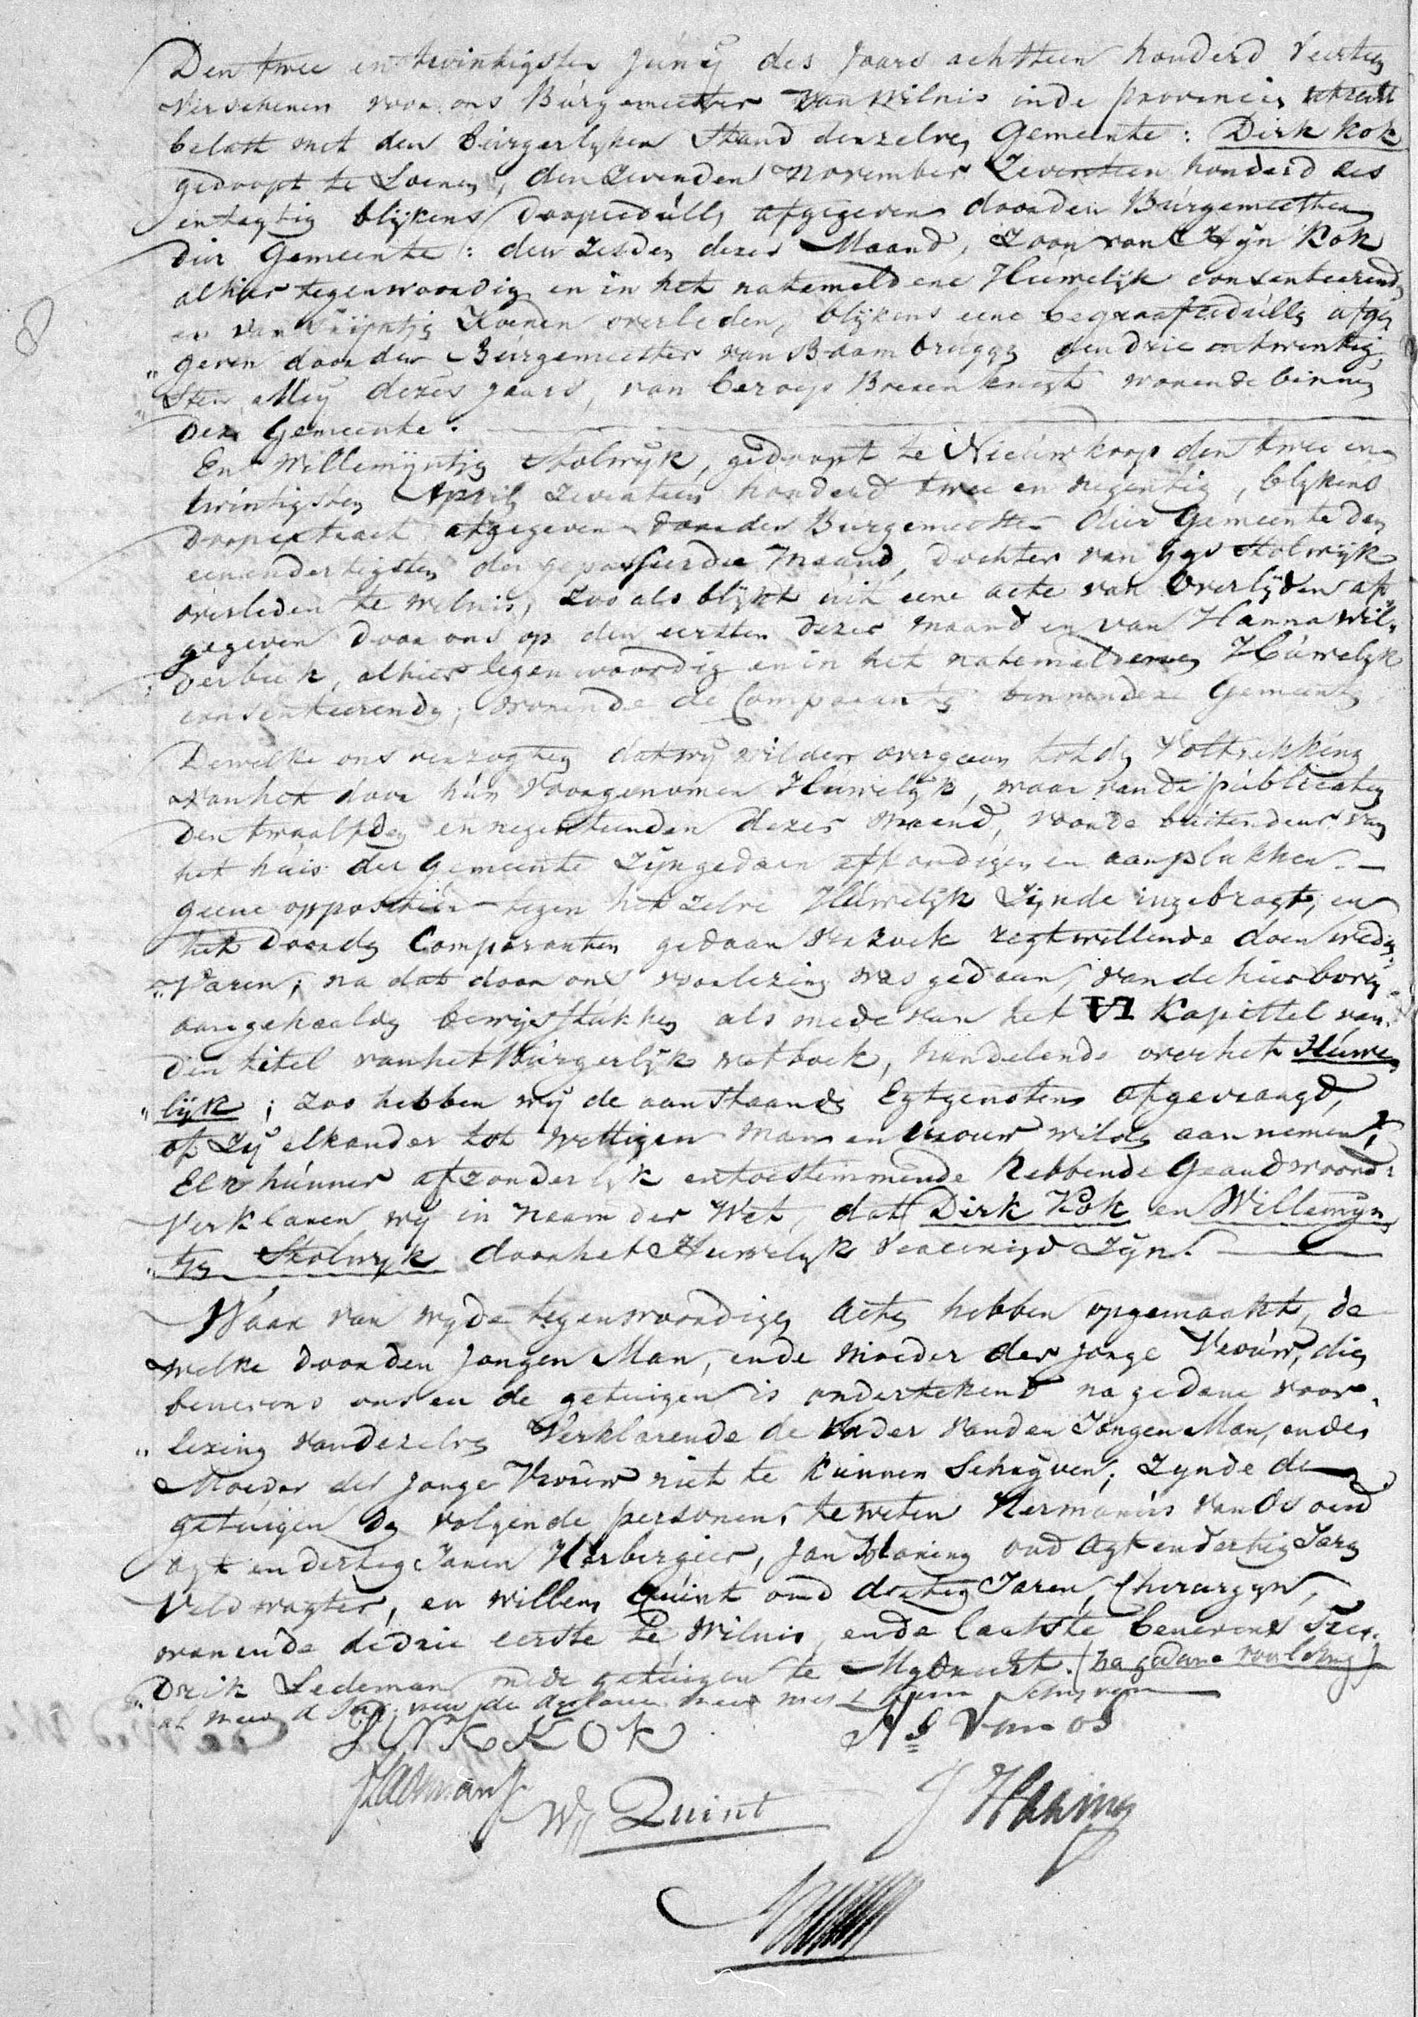 Den twee en twintigsten Junij des Jaars achttien honderd Veertien
Verschenen voor ons Burgemeester van Wilnis inde provincie Utrecht
belast met den burgerlyken Stand denzelve Gemeente : Dirk Kok
gedoopt te Loenen, den zevenden November Zeventien honderd zes
entagtig blijkens doopcedulle afgegeven doorden Burgemeester
dier Gemeente : den zesden dezer Maand, Zoon van Kok
alhier tegenwoordig en in het natemeldene Huwelijk consenteerende
en van Koenen overleden, blijkens eene begraafcedulle afge
geven door den Burgemeester van Baambrugge den drie entwentig
sten Meij dezes jaars, van beroep Boerenknegt wonende binnen
deze Gemeente.
En Willemijntje Stolwijk, gedoopt te Nieuwkoop den twee en
twintigsten April Zeventien honderd twee en negentig, blykens
doopextract afgegeven doorden Burgemeester dier Gemeente den
eenendertigsten der gepasseerde Maand, dochter van Stolwijk
overleden te Wilnis, zoo als blykt uit eene acte van Overlyden af
gegeven door ons op den eersten dezer maand en van Hanna Wil
derbeek, alhier tegenwoordig en in het natemeldene Huwelyk
consenteerende, wonende de Comparante binnendeze Gemeente
Dewelke ons verzogten datwij wilden overgaan tot de Voltrekking
vanhet door hun voorgenomen Huwelyk, waar van de publicatien
den twaalfden en negentienden dezer Maand, voor de buitendeur van
het huis der Gemeente Zijn gedaan affkondigen en aanplakken.
Geene oppositie tegen het zelve Huwelijk Zijnde ingebragt, en
het door de Comparanten gedaan verzoek regtwillende doen weder
varen, na dat door ons voorlezing was gedaan, van de hier boven
aangehaalde bewijsstukken als mede van het VI Kapittel van
den titel vanhet Burgerlijk wetboek, handelende overhet Huwe
lijk ; zoo hebben wij de aanstaande Egtgenoten afgevraagd,
of Zij elkander tot wettigen man en vrouw wilde aannemen,
Elk hunner afzonderlyk entoestemmende hebbende Geandwoord
Verklaren wy in naam der Wet, dat Dirk Kok en Willemijn
tje Stolwijk doorhet Huwelyk Vereenigd Zijn.
Waar van wyde tegenwoordige Acte hebben opgemaakt, de
welke doorden jongen Man, ende moeder der jonge Vrouw, die
benevens ons en de getuigen is ondertekend na gedane voor
lezing vandezelve Verklarende de vader vanden Jongen Man, ende
Moeder der jonge Vrouw niet te kunnen Schryven; zynde de
getuigen de volgende personen, te weten Hermanus van Os oud
agt endertig Jaren Herbergier, Jan Haning oud agt endertig Jare
Veldwagter, en Willem Quint oud dertig Jaren, Chirurgyn,
wonende dedrie eerste te Wilnis ende laatste benevens Fre
drik Ledeman mede getuigen te Mydrecht. (na gedane voorlezing)
DIRK KOK
Hs van os
W Quint
J Haaning